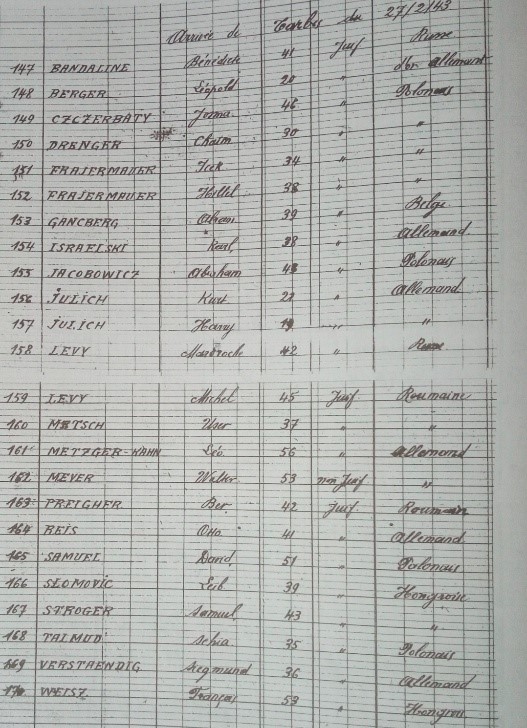 Arrivée de Tarbes du 27/2/43
147 BANDALINE Bénédict 41 Juif Russe
148 BERGER Léopold 20 " d'or. Allemand
149 CZCZERBATY 46 " Polonais
150 DRENGER Chaim 30 " "
151 FRAJERMAUER Icek 34 " "
152 FRAJERMAUER Hillel 38 " "
153 GANCBERG 39 " Belge
154 ISRAELSKI Karl 38 " Allemand
155 JACOBOWICZ Abraham 43 " Polonais
156 JULICH Kurt 22 " Allemand
157 JULICH Harry 19 " "
158 LEVY 42 " Russe
159 LEVY Michel 45 Juif Roumaine
160 METSCH User 37 " "
161 METZGER-KAHN Léo 56 " Allemand
162 MEYER Walter 53 non Juif "
163 PREIGHER Ber 42 Juif Roumain
164 REIS Otto 41 " Allemand
165 SAMUEL David 51 " Polonais
166 SLOMOVIC Leib 39 " Hongroise
167 STROGER Samuel 43 " "
168 TALMUD Schia 35 " Polonais
169 VERSTAENDIG Siegmund 36 " Allemand
170 WEISZ François 53 " Hongrois